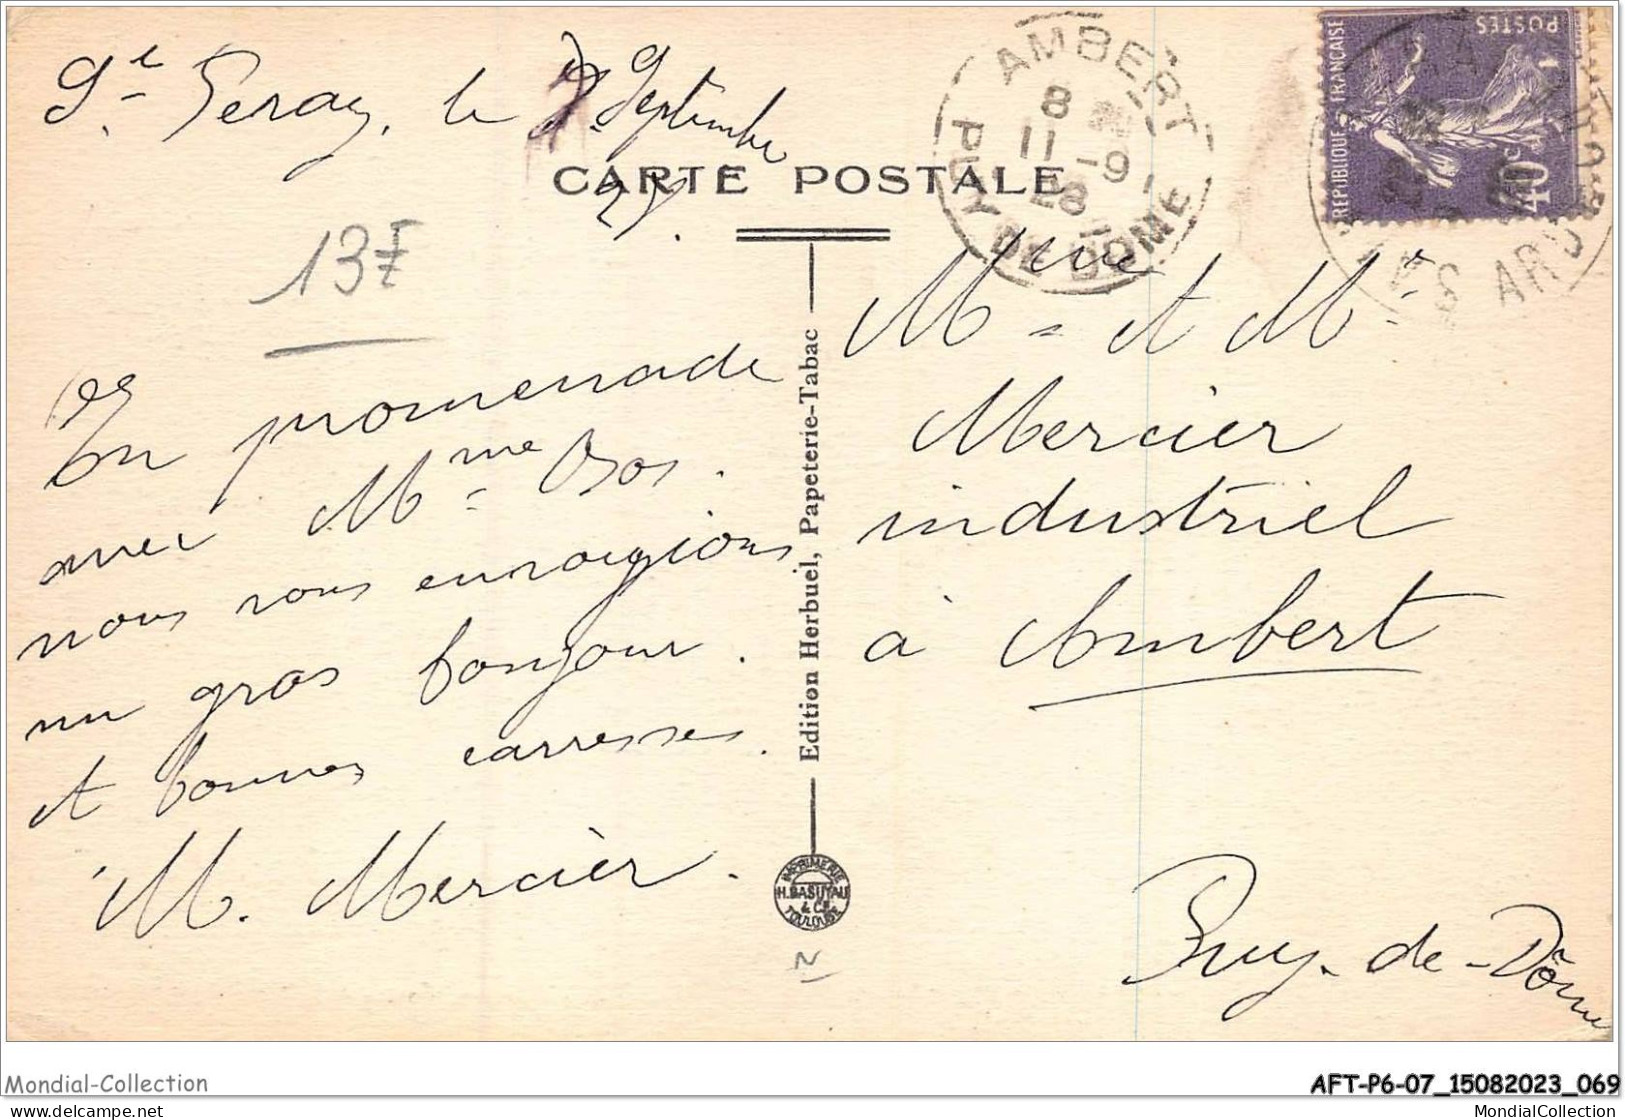 St Peray, le Septembre
CARTE POSTALE
AMBERT
8
11 -9
28
PUY DE DOME
POSTES
REPUBLIQUE FRANÇAISE
40c
13F
Mme et Mr
Mercier
industriel
à Ambert
Puy-de-Dôme
En promenade
avec Mme Bos.
nous vous envoyions
un gros bonjour.
et bonnes carresses.
M. Mercier.
Edition Herbuel, Papeterie-Tabac
IMPRIMERIE
H. BASUYAU
& Cie
TOULOUSE
Mondial-Collection
AFT-P6-07_15082023_069
MondialCollection
MondialCollection